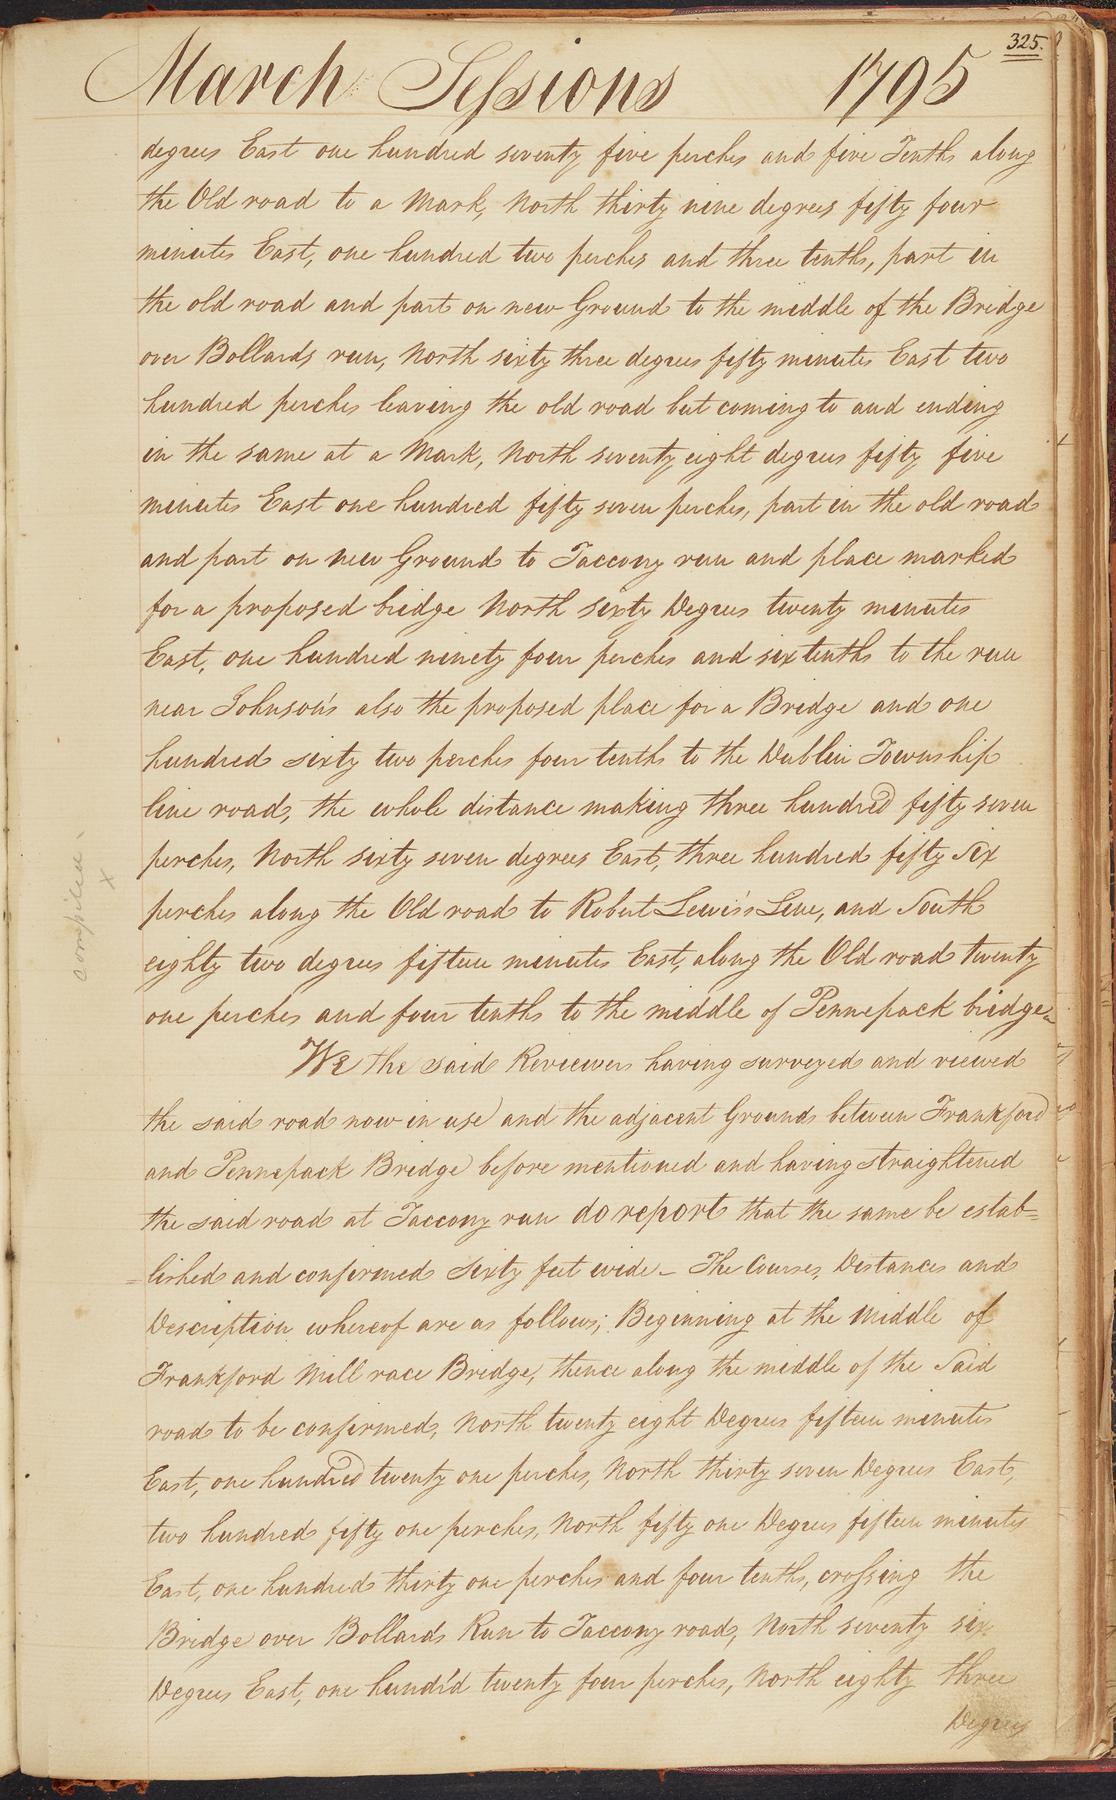 325.
March Sessions 1795
degrees East one hundred seventy five perches and five Tenths along
the Old road to a Mark, North thirty nine degrees fifty four
minutes East, one hundred two perches and three tenths, part in
the old road and part on new Ground to the middle of the Bridge
over Bollards run, North sixty three degrees fifty minutes East two
hundred perches leaving the old road but coming to and ending
in the same at a Mark, North seventy eight degrees fifty five
minutes East one hundred fifty seven perches, part in the old road
and part on new Ground to Taccony run and place marked
for a proposed bridge North sixty Degrees twenty minutes
East, one hundred ninety four perches and six tenths to the run
near Johnson's also the proposed place for a Bridge and one
hundred sixty two perches four tenths to the Dublin Township
line road, the whole distance making three hundred fifty seven
perches, North sixty seven degrees East, three hundred fifty six
perches along the Old road to Robert Lewis's Line, and South
eighty two degrees fifteen minutes East, along the Old road twenty
one perches and four tenths to the middle of Pennepack bridge.
We the said Reviewers having surveyed and viewed
the said road now in use and the adjacent Grounds between Frankford
and Pennepack Bridge before mentioned and having straightened
the said road at Taccony run do report that the same be estab=
=lished and confirmed sixty feet wide - The Courses, Distances and
Description whereof are as follows; Beginning at the Middle of
Frankford Mill race Bridge, thence along the middle of the said
road to be confirmed, North twenty eight Degrees fifteen minutes
East, one hundred twenty one perches, North thirty seven Degrees East,
two hundred fifty one perches, North fifty one Degrees fifteen minutes
East, one hundred thirty one perches and four tenths, crossing the
Bridge over Bollards Run to Taccony road, North seventy six
Degrees East, one hund'd twenty four perches, North eighty three
Degrees
compiled
x